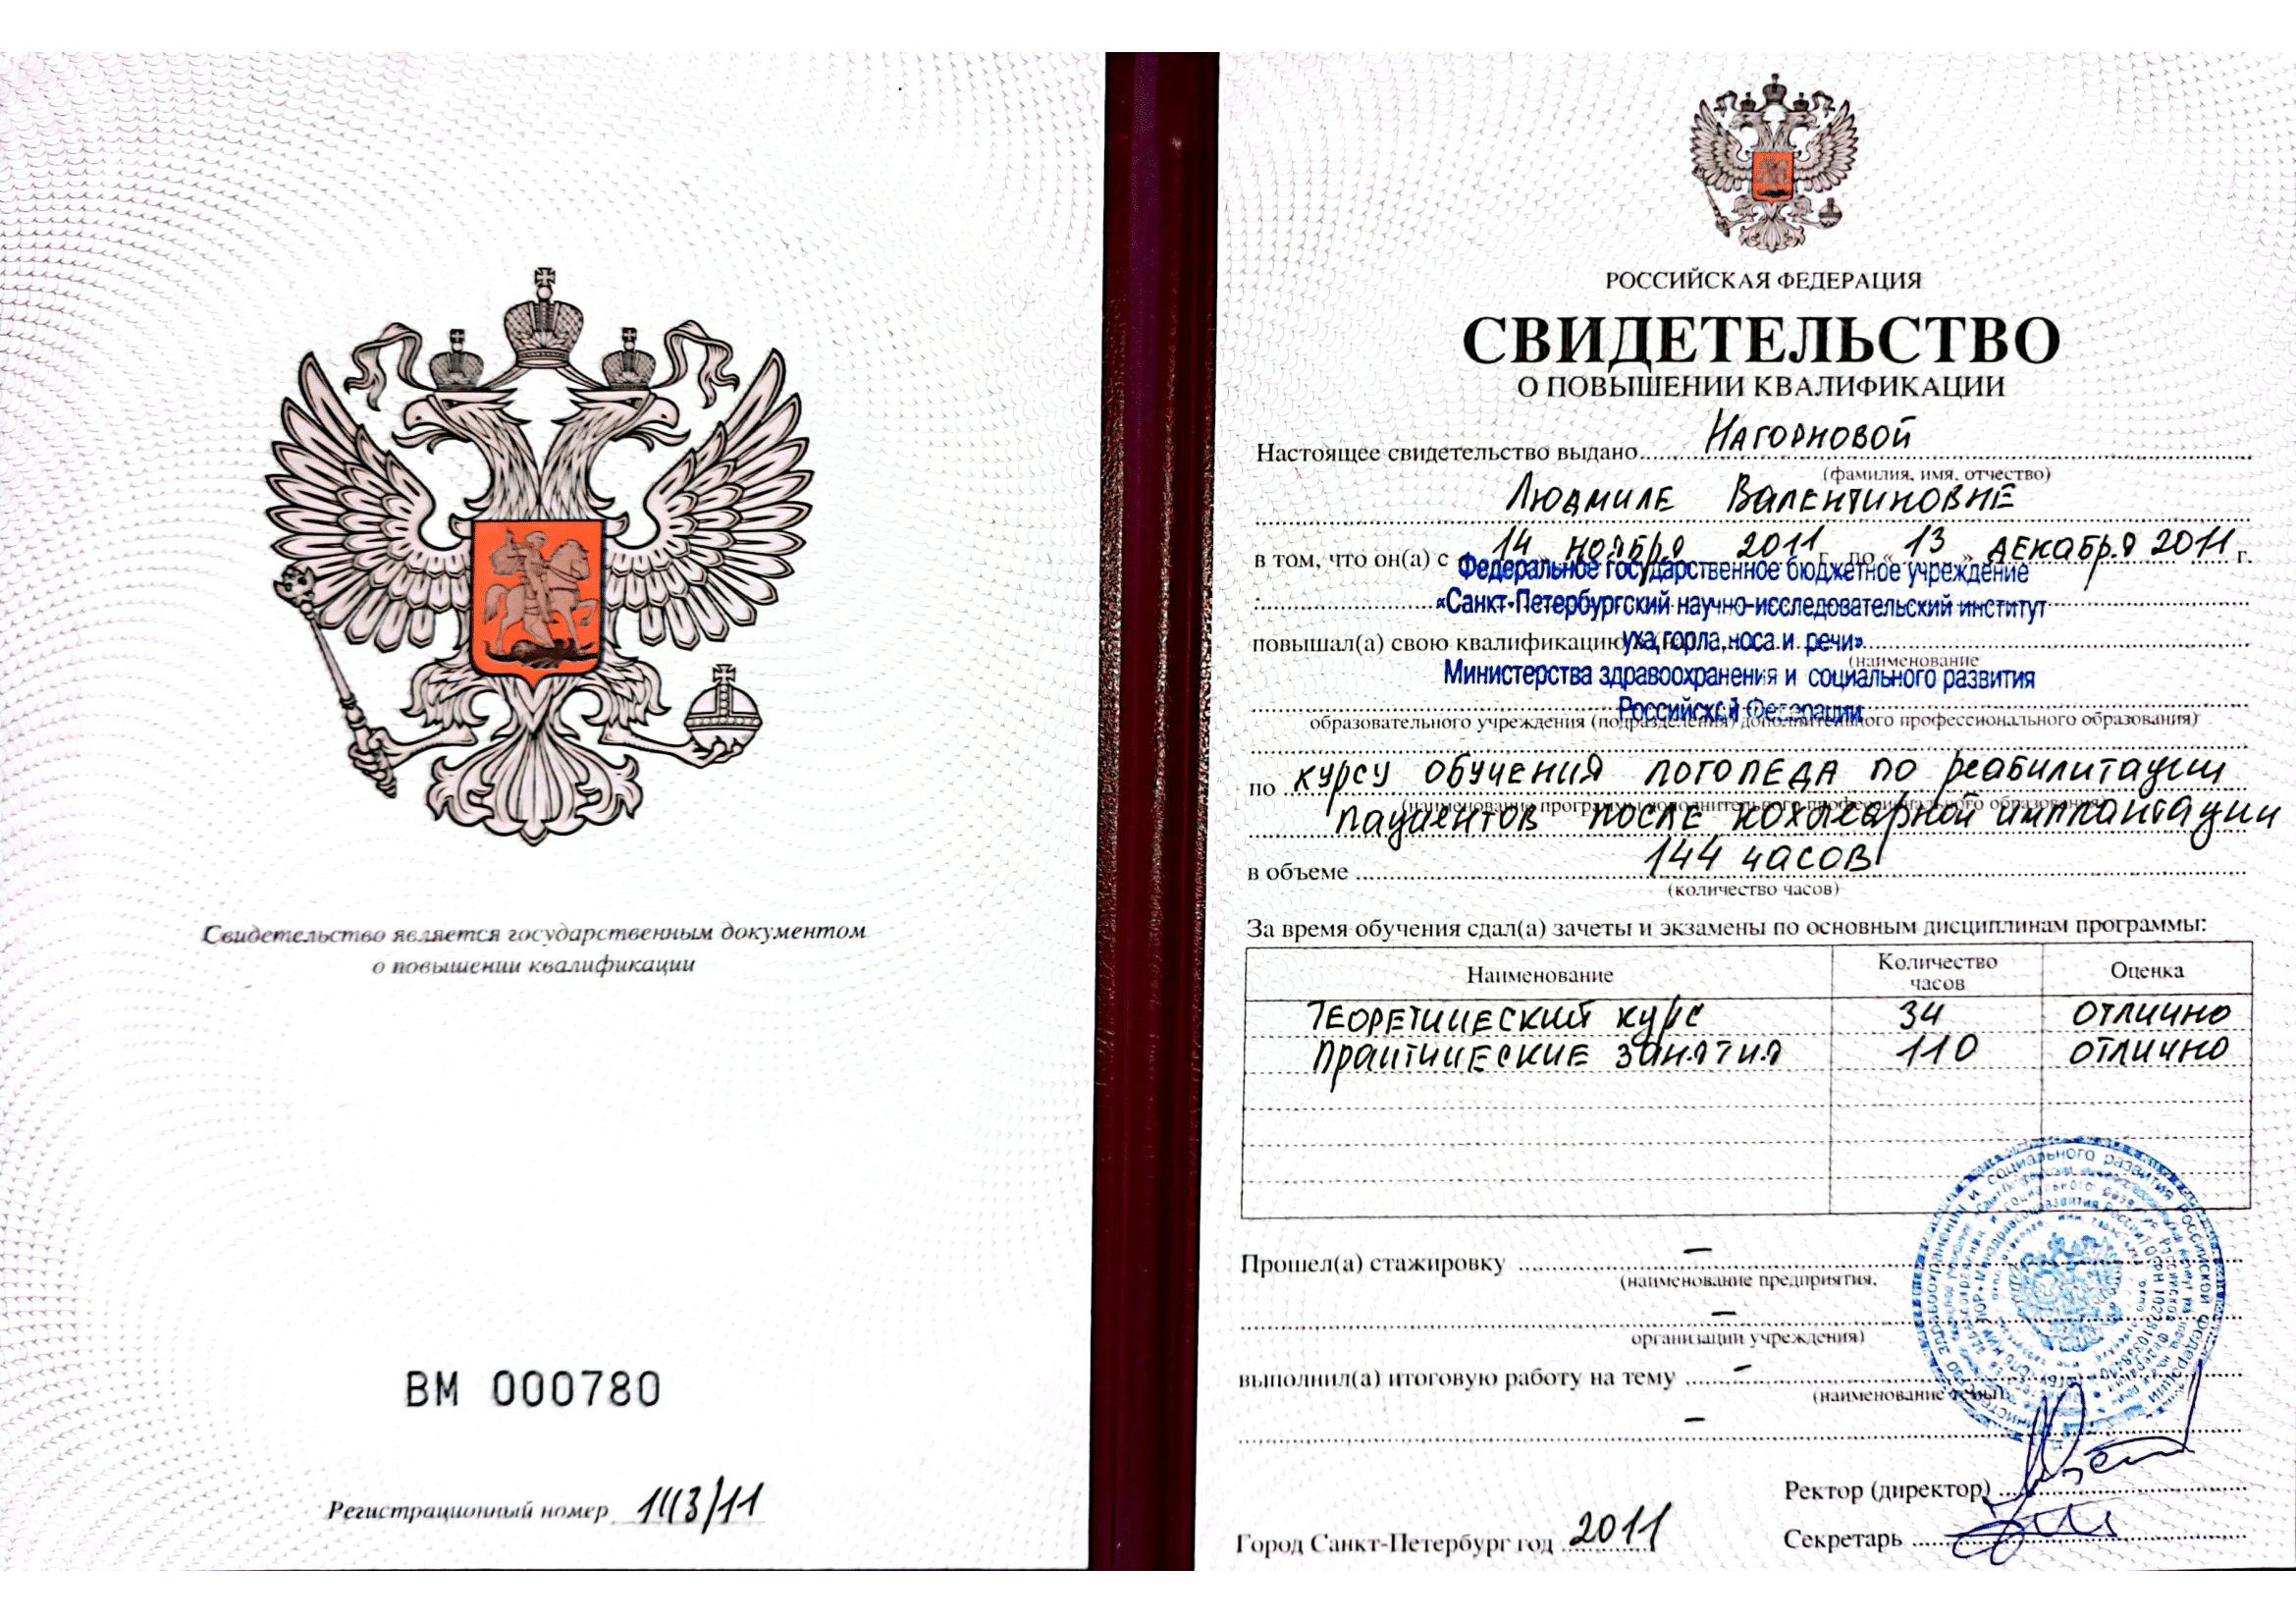 Свидетельство является государственным документом
о повышении квалификации
ВМ 000780
Регистрационный номер 143/11
РОССИЙСКАЯ ФЕДЕРАЦИЯ
СВИДЕТЕЛЬСТВО
О ПОВЫШЕНИИ КВАЛИФИКАЦИИ
Настоящее свидетельство выдано Нагорновой
(фамилия, имя, отчество)
Людмиле Валентиновне
в том, что он(а) с « 14 » ноября 2011 г. по « 13 » декабря 2011 г.
Федеральное государственное бюджетное учреждение
«Санкт-Петербургский научно-исследовательский институт
повышал(а) свою квалификацию уха, горла, носа и речи»
(наименование
Министерства здравоохранения и социального развития
Российской Федерации
образовательного учреждения (подразделения) дополнительного профессионального образования)
по курсу обучения логопеда по реабилитации
(наименование программы дополнительного профессионального образования)
пациентов после кохлеарной имплантации
в объеме 144 часов
(количество часов)
За время обучения сдал(а) зачеты и экзамены по основным дисциплинам программы:
Наименование Количество часов Оценка
Теоретический курс 34 отлично
Практические занятия 110 отлично
Прошел(а) стажировку –
(наименование предприятия,
–
организации учреждения)
выполнил(а) итоговую работу на тему –
(наименование темы)
–
Ректор (директор)
Город Санкт-Петербург год 2011
Секретарь